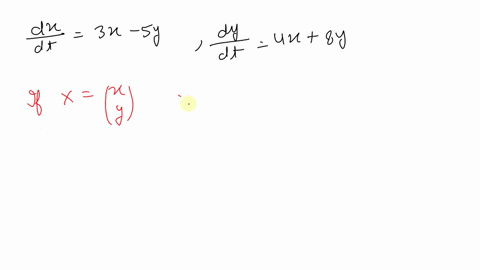 dx/dt = 3x - 5y , dy/dt = 4x + 8y
If X = (x y)